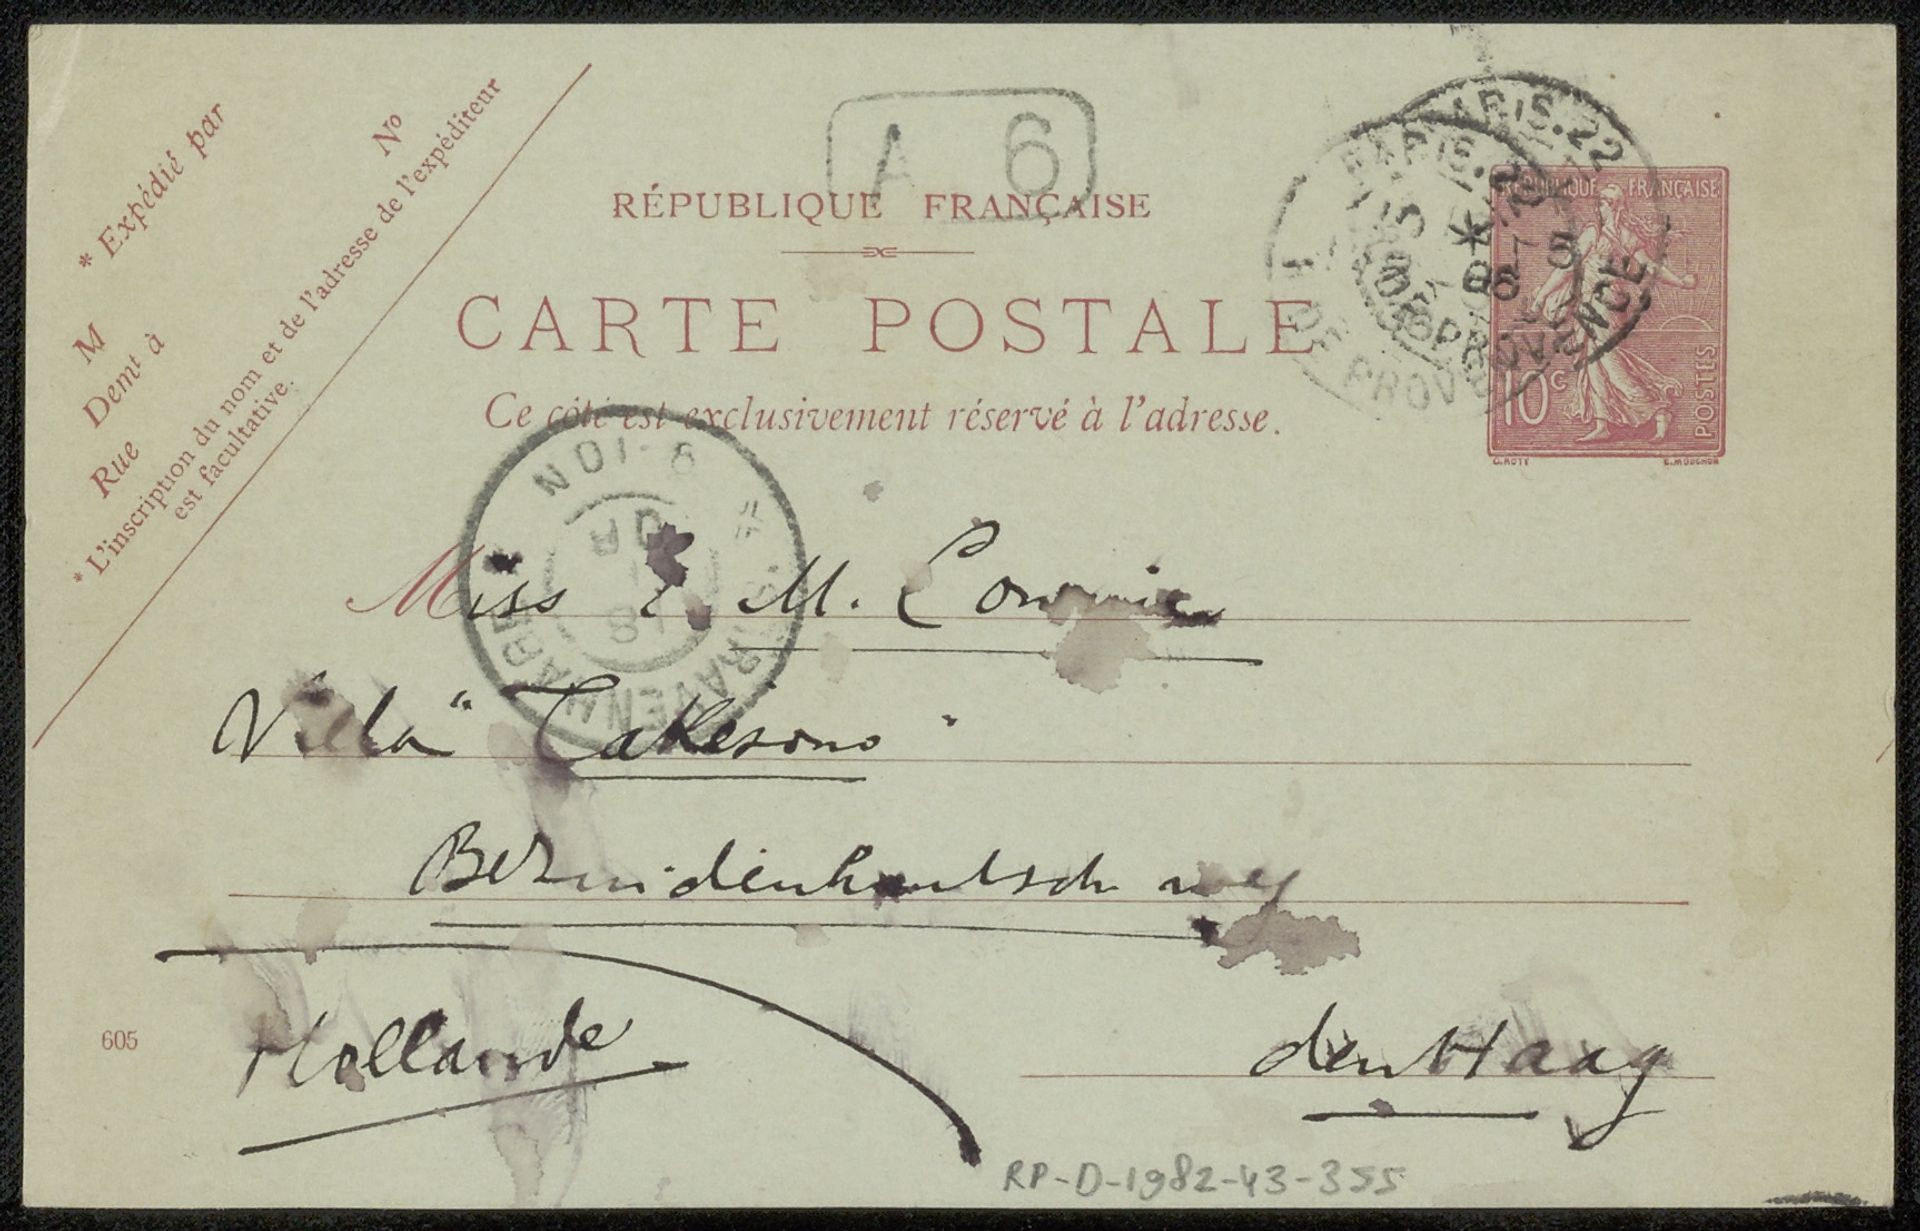 * Expédié par
No
M
Demt à
Rue
* L'inscription du nom et de l'adresse de l'expéditeur
est facultative.
A 6
RÉPUBLIQUE FRANÇAISE
CARTE POSTALE
Ce côté est exclusivement réservé à l'adresse.
PARIS. 22
RÉPUBLIQUE FRANÇAISE
10c
POSTES
O. ROTY E. MOUCHON
'S GRAVENHAGE
Miss E. M.
Villa "Takesono"
Bezuidenhoutsch weg
Hollande
den Haag
605
RP-D-1982-43-355